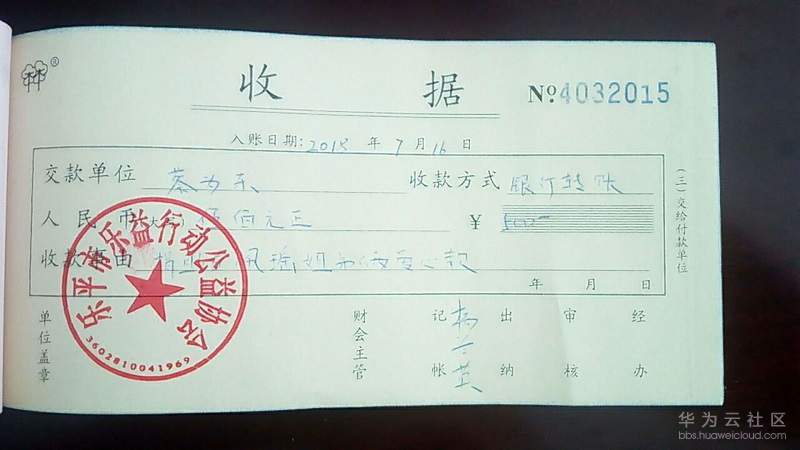 收 据 №4032015
入账日期:2015 年 7 月 16 日
交款单位 蔡为东 收款方式 银行转账
人民币(大写) 伍佰元正 ¥ 500-
收款事由 姐弟俩爱心款
年 月 日
(三)交给付款单位
单位盖章 财会主管 记帐 出纳 审核 经办
乐平市乐益行动公益协会
3602810041969
华为云社区
bbs.huaweicloud.com